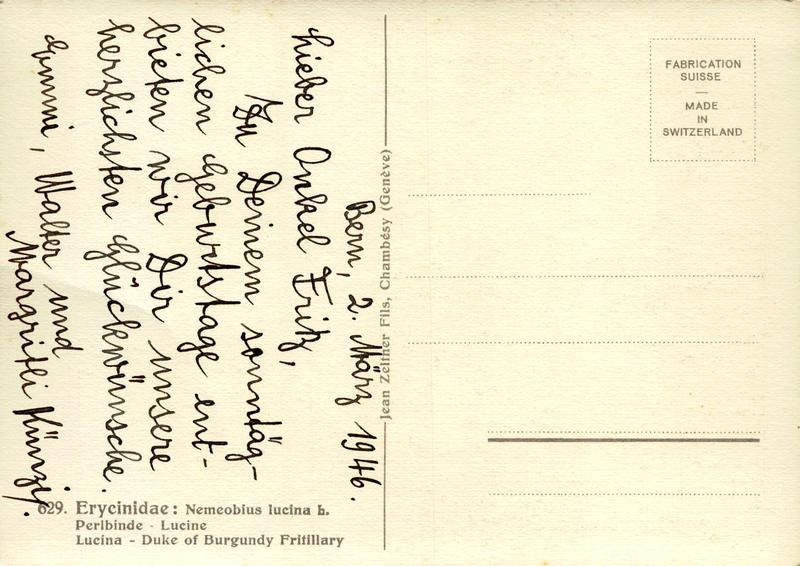 Bern, 2. März 1946.
Lieber Onkel Fritz,
Zu Deinem sonntäg-
lichen Geburtstage ent-
bieten wir Dir unsere
herzlichsten Glückwünsche.
Emmi, Walter und
Margritli Künzi.
629. Erycinidae: Nemeobius lucina L.
Perlbinde - Lucine
Lucina - Duke of Burgundy Fritillary
Jean Zeltner Fils, Chambésy (Genève)
FABRICATION
SUISSE
—
MADE
IN
SWITZERLAND